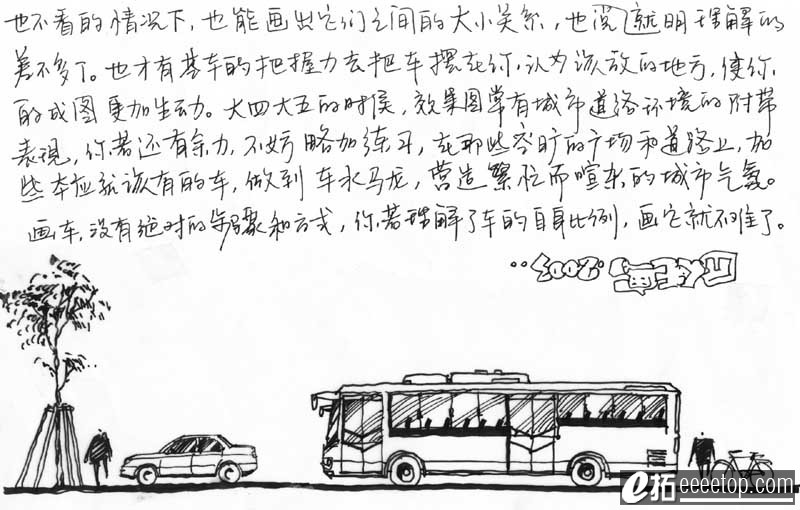 也不看的情况下,也能画出它们之间的大小关系,也说就明理解的
差不多了。也才有基车的把握力去把车摆在你,认为该放的地方,使你
的成图更加生动。大四大五的时候,效果图常有城市道路环境的附带
表现,你若还有余力,不妨略加练习,在那些空旷的广场和道路上,加
些本应就该有的车,做到车水马龙,营造繁忙而喧杂的城市气氛。
画车,没有绝对的步骤和方式,你若理解了车的自身比例,画它就不难了。
e拓 eeeetop.com